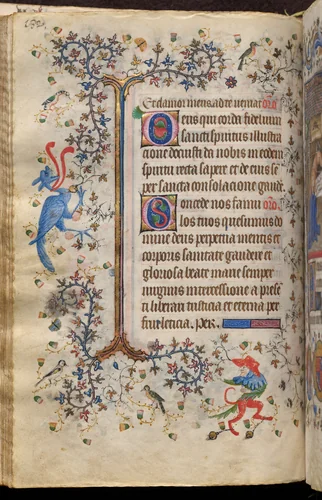 Et clamor meus ad te veniat oro
Deus qui corda fidelium
sancti spiritus illustra
cione docuisti da nobis in eodem
spiritu recta sapere et de eius se
per sancta consolacione gaude.
Concede nos famu oro
los tuos quesumus do
mine deus perpetua mentis et
corporis sanitate gaudere et
gloriosa beate marie semper
virginis intercessione a prese
ti liberari tristicia et eterna per
frui leticia. Per.